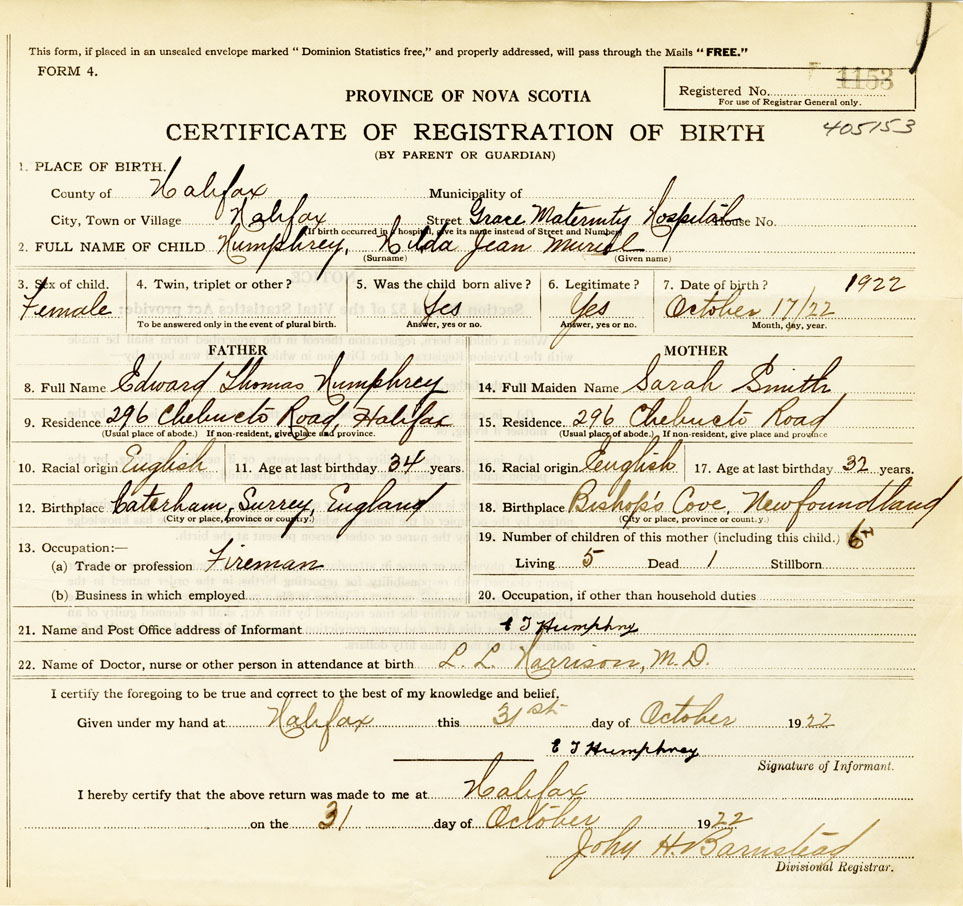 This form, if placed in an unsealed envelope marked "Dominion Statistics free," and properly addressed, will pass through the Mails "FREE."
FORM 4.
Registered No. 1153
For use of Registrar General only.
PROVINCE OF NOVA SCOTIA
CERTIFICATE OF REGISTRATION OF BIRTH 405153
(BY PARENT OR GUARDIAN)
1. PLACE OF BIRTH.
County of Halifax Municipality of
City, Town or Village Halifax Street Grace Maternity Hospital House No.
(If birth occurred in a hospital, give its name instead of Street and Number)
2. FULL NAME OF CHILD Humphrey, Hilda Jean Muriel
(Surname) (Given name)
3. Sex of child. 4. Twin, triplet or other? 5. Was the child born alive? 6. Legitimate? 7. Date of birth? 1922
Female Yes Yes October 17/22
To be answered only in the event of plural birth. Answer, yes or no. Answer, yes or no. Month, day, year.
FATHER MOTHER
8. Full Name Edward Thomas Humphrey 14. Full Maiden Name Sarah Smith
9. Residence 296 Chebucto Road, Halifax 15. Residence 296 Chebucto Road
(Usual place of abode.) If non-resident, give place and province. (Usual place of abode.) If non-resident, give place and province
10. Racial origin English 11. Age at last birthday 34 years. 16. Racial origin English 17. Age at last birthday 32 years.
12. Birthplace Caterham, Surrey, England 18. Birthplace Bishop's Cove, Newfoundland
(City or place, province or country.) (City or place, province or count.y.)
19. Number of children of this mother (including this child.) 6
13. Occupation:— Living 5 Dead 1 Stillborn
(a) Trade or profession Fireman
(b) Business in which employed 20. Occupation, if other than household duties
21. Name and Post Office address of Informant E T Humphry
22. Name of Doctor, nurse or other person in attendance at birth L. L. Harrison, M.D.
I certify the foregoing to be true and correct to the best of my knowledge and belief.
Given under my hand at Halifax this 31st day of October 1922
E T Humphrey
Signature of Informant.
I hereby certify that the above return was made to me at Halifax
on the 31 day of October 1922
John H. Barnstead
Divisional Registrar.